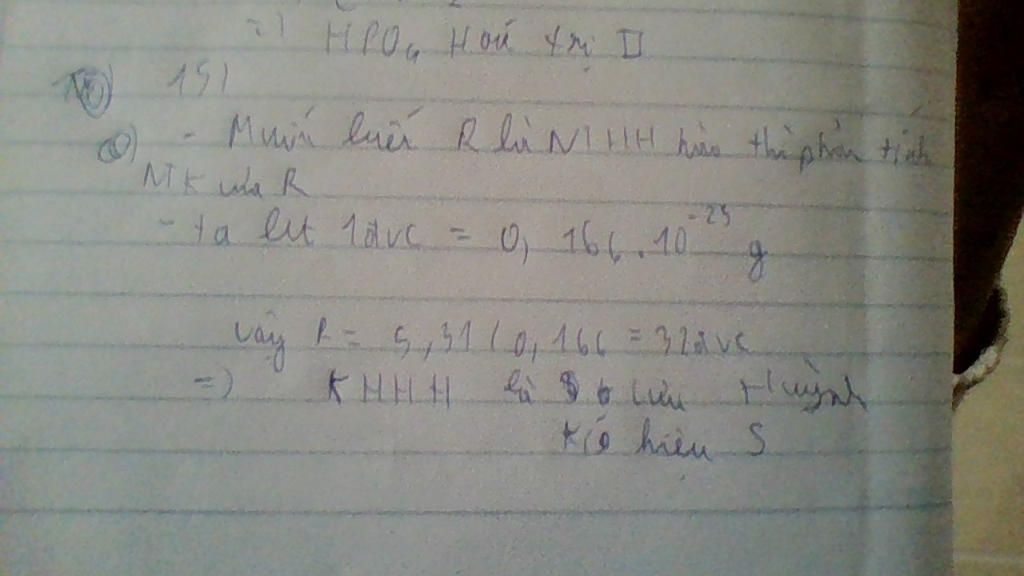 =) HPO₄ Hoá trị II
15)
a) - Muốn biết R là NTHH nào thì phải tính
NTK của R
- ta biết 1đvc = 0,166.10⁻²³ g
Vậy R = 5,31 / 0,166 = 32đvc
=) KHHH là lưu Huỳnh
kí hiệu S